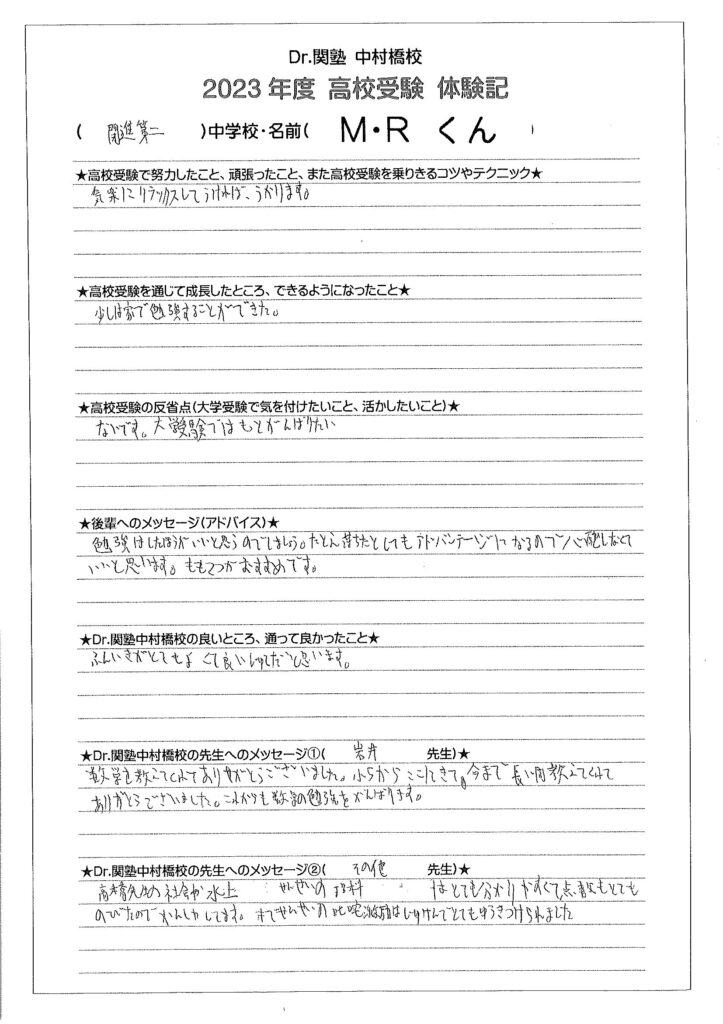 Dr.関塾 中村橋校
2023年度 高校受験 体験記
( 開進第二 )中学校・名前( M・R くん )
★高校受験で努力したこと、頑張ったこと、また高校受験を乗りきるコツやテクニック★
気楽にリラックスしてうければ、うかります。
★高校受験を通じて成長したところ、できるようになったこと★
少しは家で勉強することができた。
★高校受験の反省点(大学受験で気を付けたいこと、活かしたいこと)★
ないです。大学受験ではもとがんばりたい
★後輩へのメッセージ(アドバイス)★
勉強はしたほうがいいと思うのでしましょう。たとえ落ちたとしてもアドバンテージになるので心配しなくて
いいと思います。ももてつがおすすめです。
★Dr.関塾中村橋校の良いところ、通って良かったこと★
ふんいきがとてもよくて良いじゅくだと思います。
★Dr.関塾中村橋校の先生へのメッセージ①( 岩井 先生)★
数学を教えてくれてありがとうございました。小5からここにきて、今まで長い間教えてくれて
ありがとうございました。これからも数学の勉強をがんばります。
★Dr.関塾中村橋校の先生へのメッセージ②( その他 先生)★
高橋先生の社会や水上せんせいの理科はとても分かりやすくて点数もとても
のびたのでかんしゃしてます。せんせいの叱咤激励はじゅけんでとてもゆうきづけられました